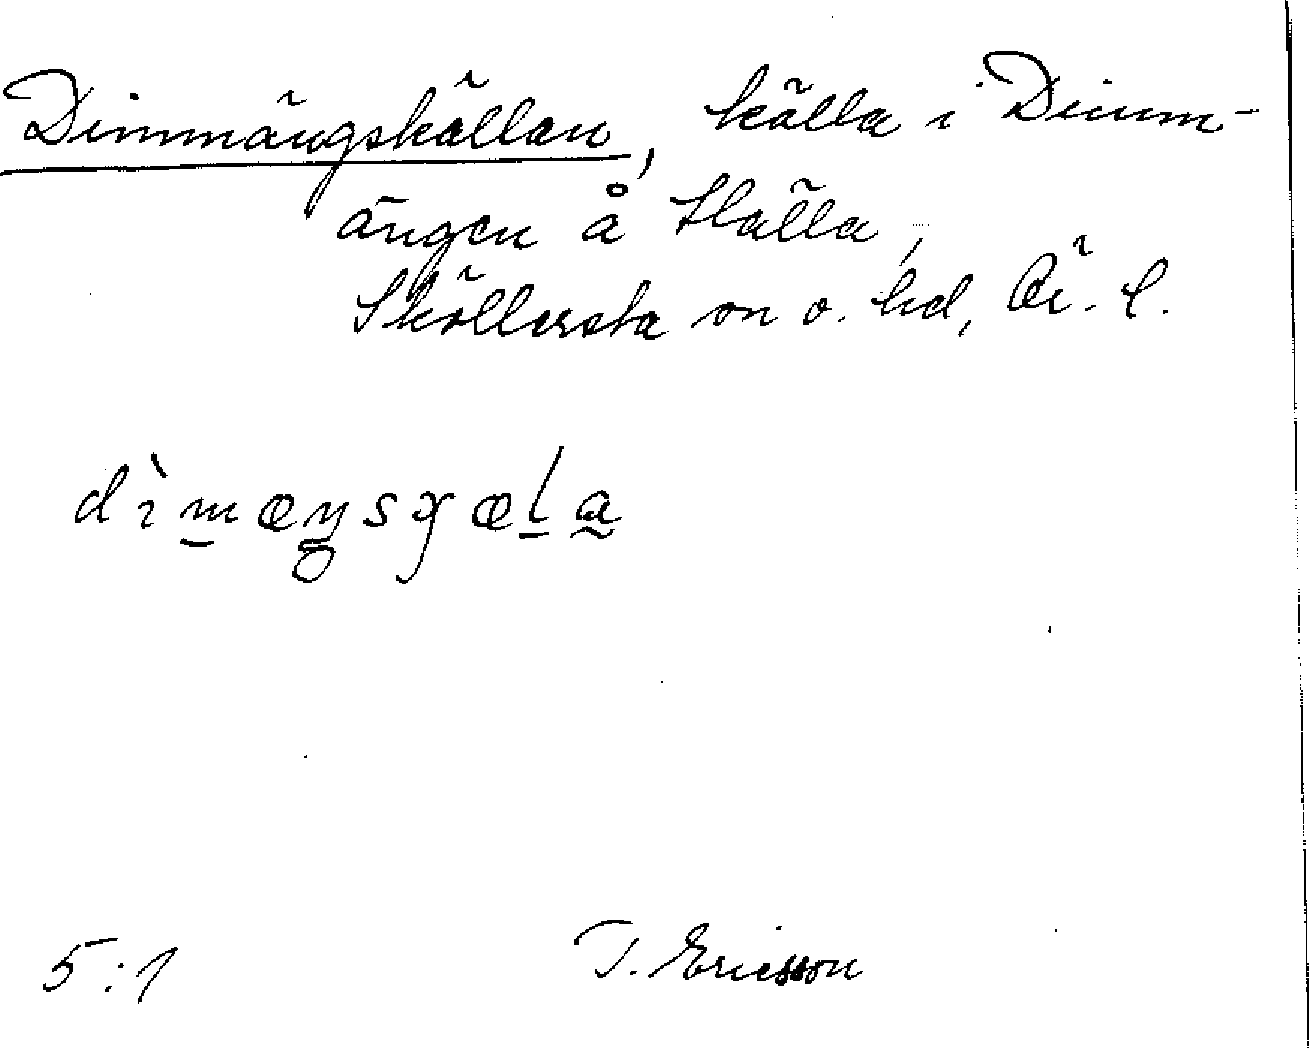 Dimmängskällan, källa i Dimm-
ängen å Hälla,
Sköllersta sn o. hd, Ör. l.
dìmæŋsχæla
5:1 T. Ericsson